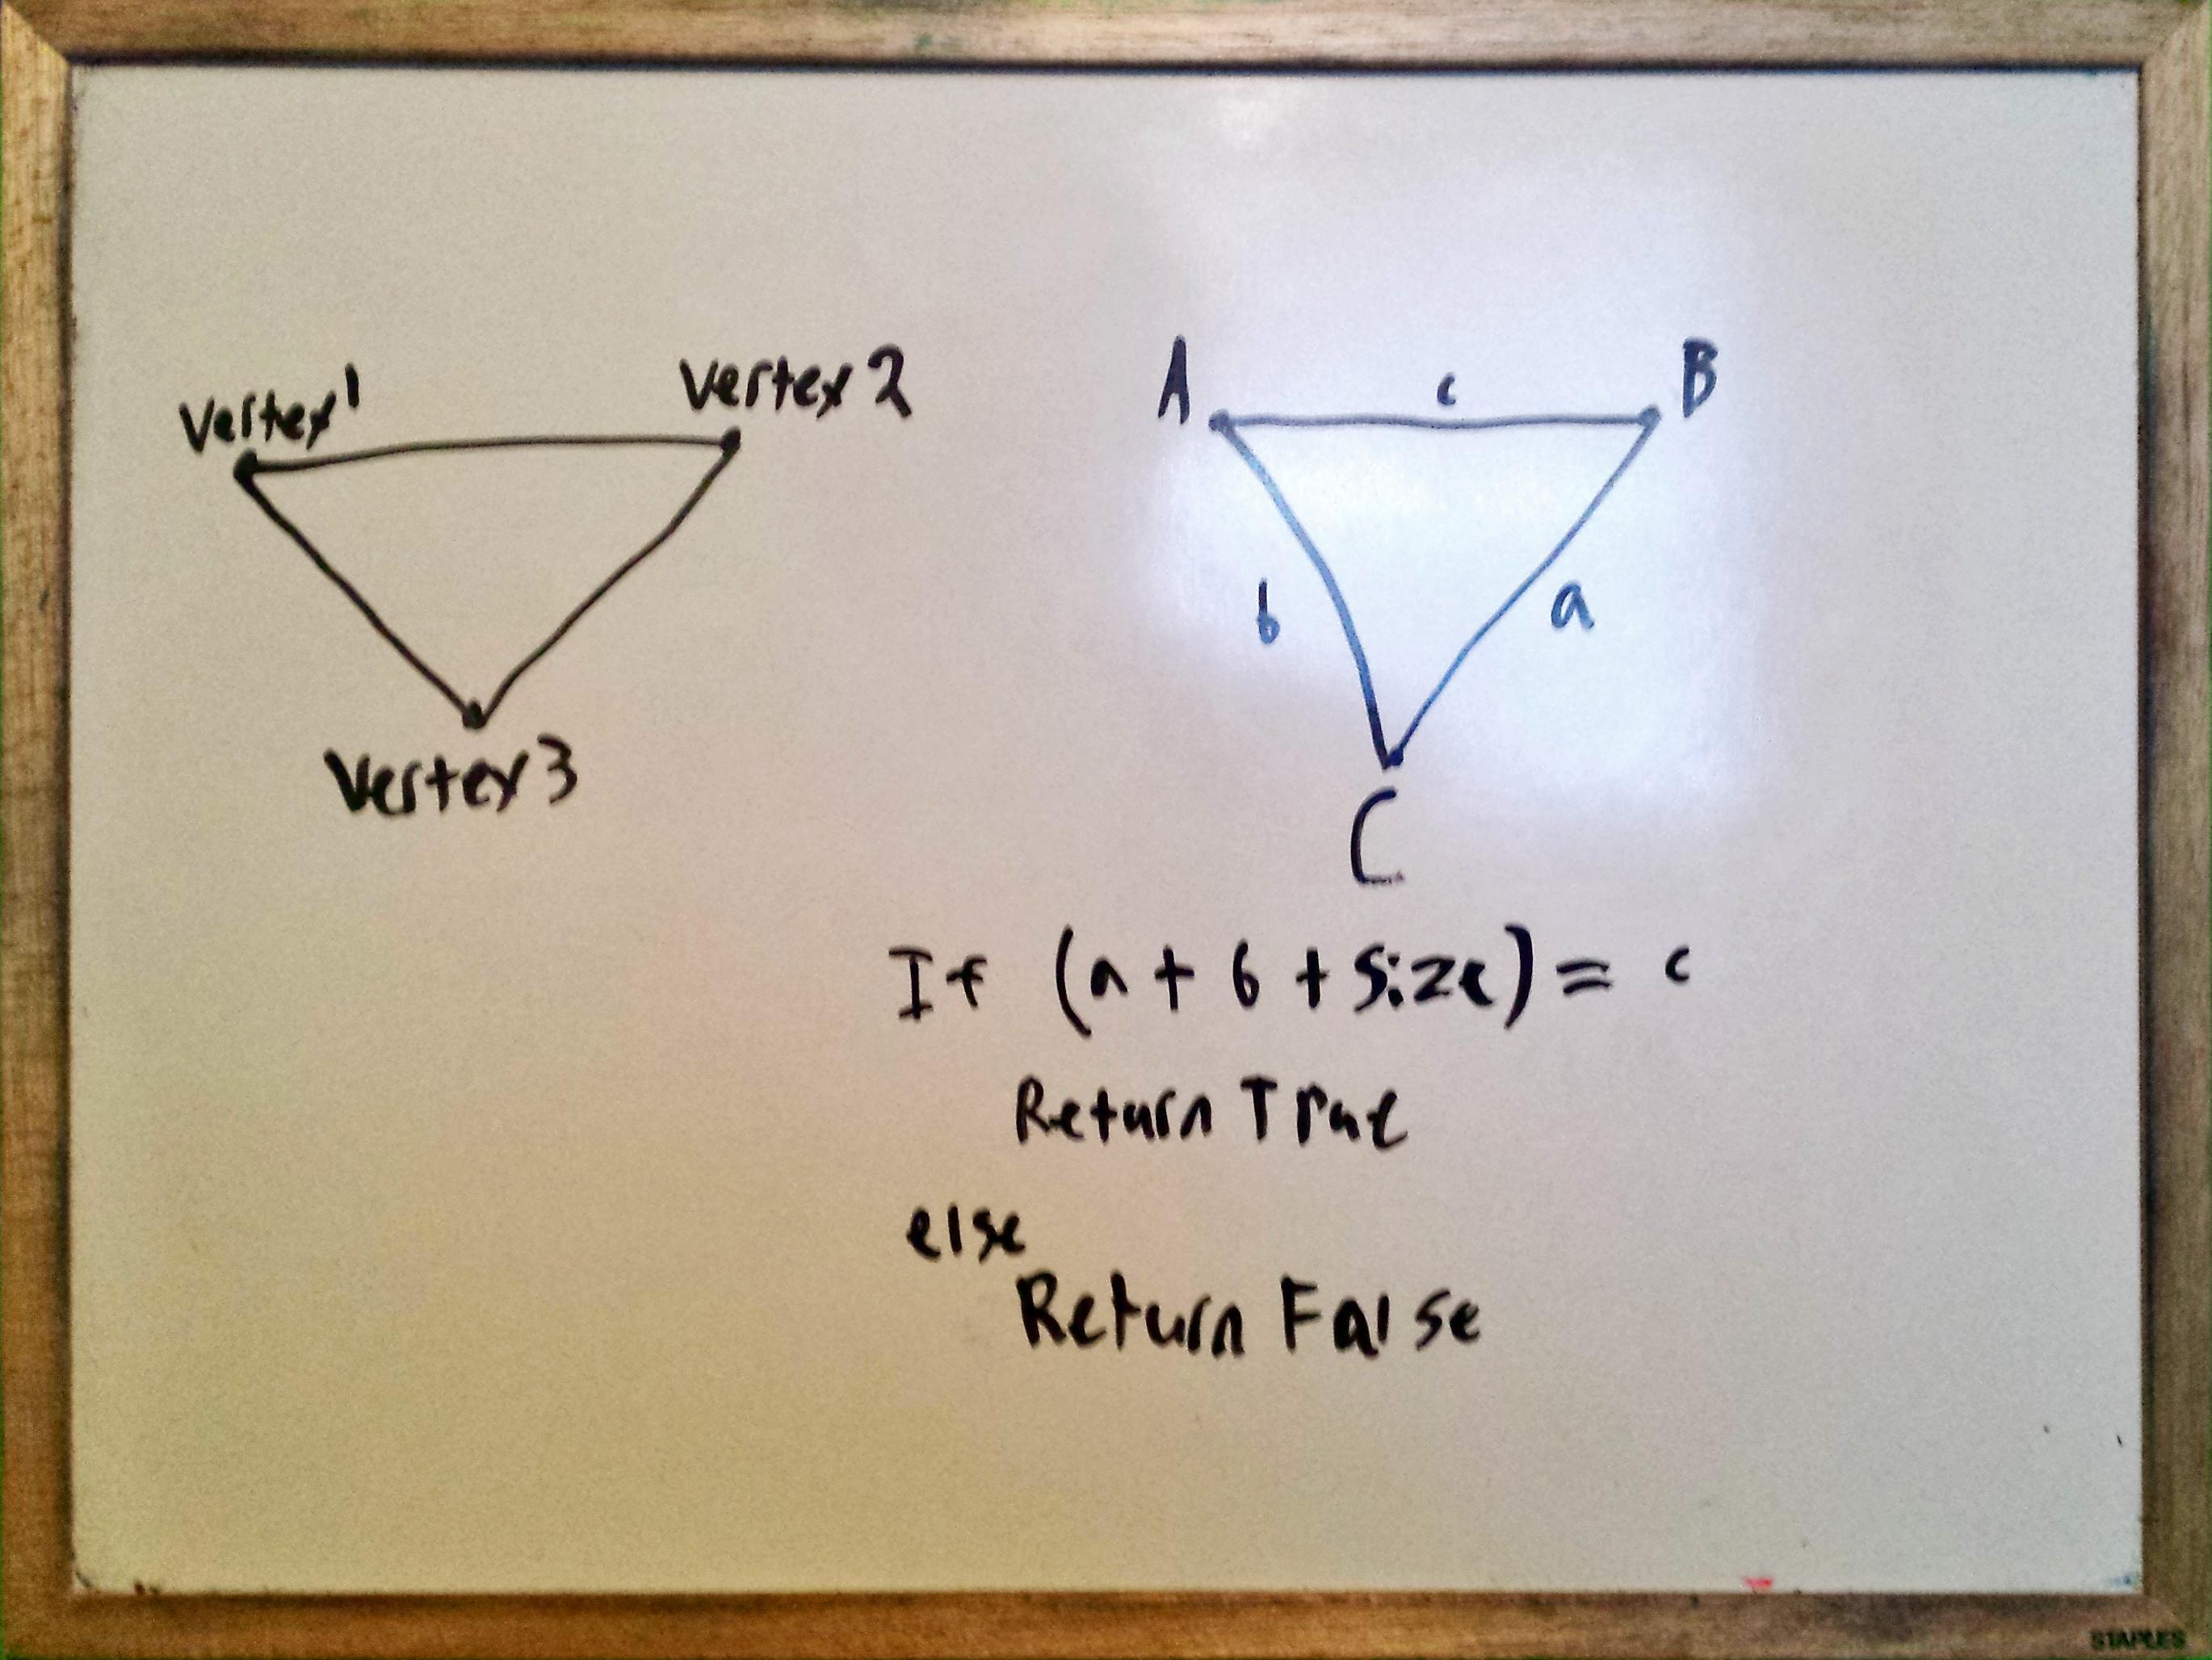 Vertex 1
Vertex 2
Vertex 3
A
c
B
b
a
C
If (a + b + size) = c
Return True
else
Return False
STAPLES